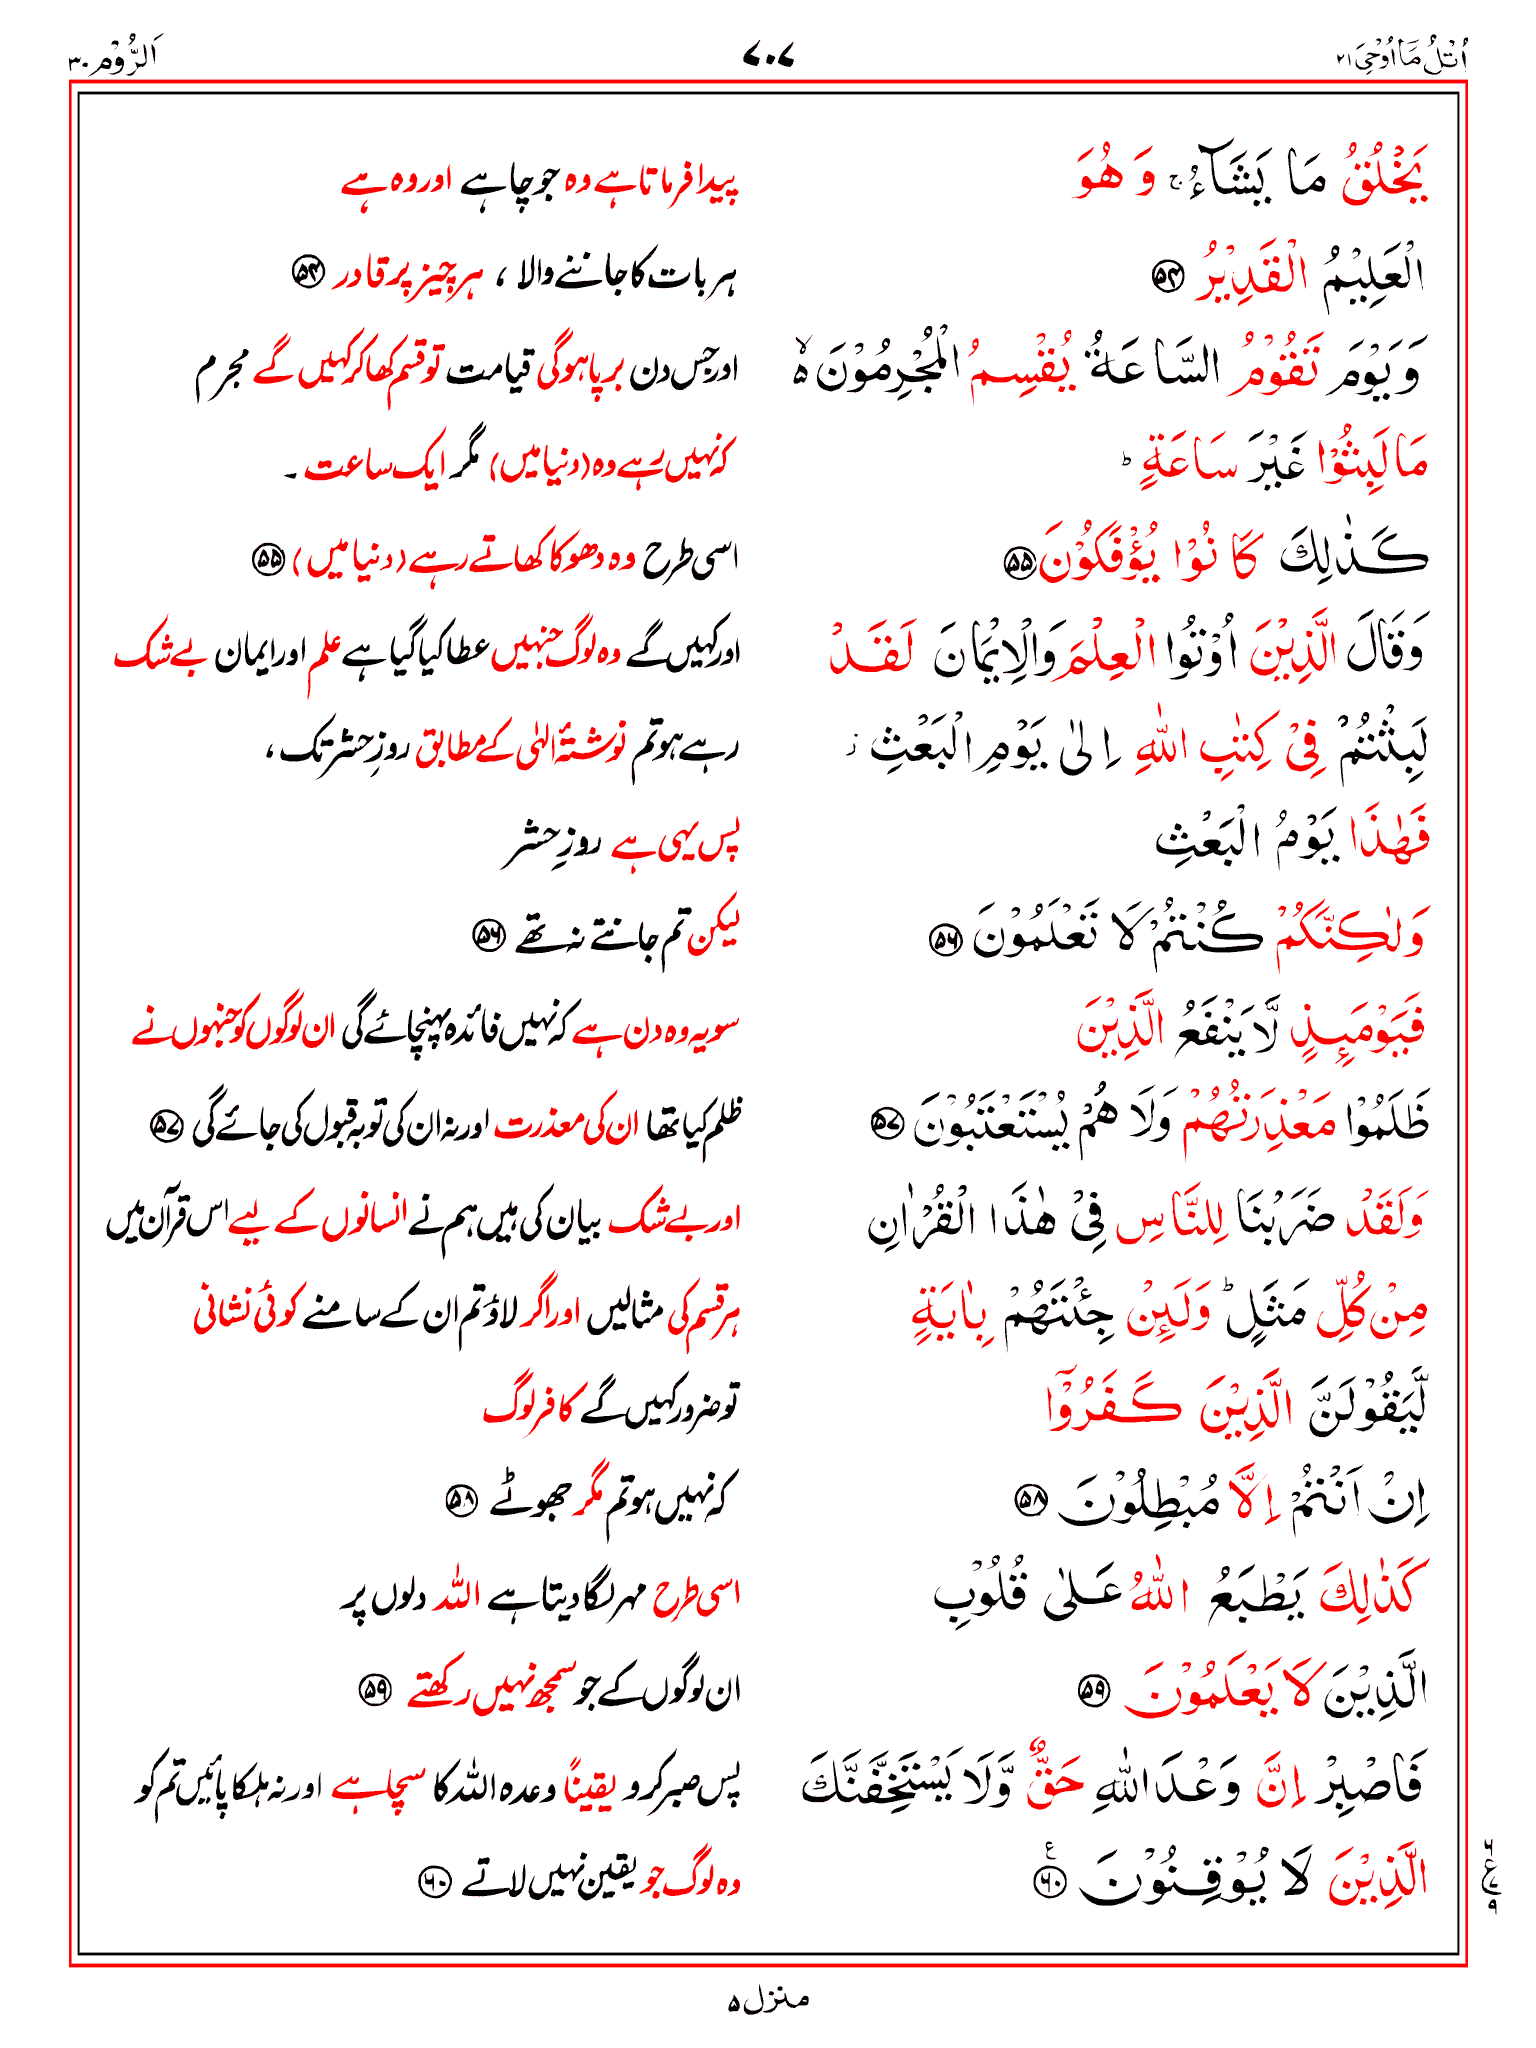 اُتْلُ مَآ اُوْحِیَ ۲۱ ۷۰۷ اَلرُّوْم ۳۰
یَخْلُقُ مَا یَشَآءُ ۚ وَ هُوَ پیدا فرماتا ہے وہ جو چاہے اور وہ ہے
الْعَلِیْمُ الْقَدِیْرُ ﴿۵۴﴾ ہر بات کا جاننے والا ، ہر چیز پر قادر ﴿۵۴﴾
وَ یَوْمَ تَقُوْمُ السَّاعَةُ یُقْسِمُ الْمُجْرِمُوْنَ ۙ۬ اور جس دن برپا ہوگی قیامت تو قسم کھا کر کہیں گے مجرم
مَا لَبِثُوْا غَیْرَ سَاعَةٍ ؕ کہ نہیں رہے وہ (دنیا میں) مگر ایک ساعت ۔
كَذٰلِكَ كَانُوْا یُؤْفَكُوْنَ ﴿۵۵﴾ اسی طرح وہ دھوکا کھاتے رہے (دنیا میں) ﴿۵۵﴾
وَ قَالَ الَّذِیْنَ اُوْتُوا الْعِلْمَ وَ الْاِیْمَانَ لَقَدْ اور کہیں گے وہ لوگ جنہیں عطا کیا گیا ہے علم اور ایمان بے شک
لَبِثْتُمْ فِیْ كِتٰبِ اللّٰهِ اِلٰی یَوْمِ الْبَعْثِ ؗ رہے ہو تم نوشتۂ الٰہی کے مطابق روزِ حشر تک ،
فَهٰذَا یَوْمُ الْبَعْثِ پس یہی ہے روزِ حشر
وَ لٰكِنَّكُمْ كُنْتُمْ لَا تَعْلَمُوْنَ ﴿۵۶﴾ لیکن تم جانتے نہ تھے ﴿۵۶﴾
فَیَوْمَىِٕذٍ لَّا یَنْفَعُ الَّذِیْنَ سو یہ وہ دن ہے کہ نہیں فائدہ پہنچائے گی ان لوگوں کو جنہوں نے
ظَلَمُوْا مَعْذِرَتُهُمْ وَ لَا هُمْ یُسْتَعْتَبُوْنَ ﴿۵۷﴾ ظلم کیا تھا ان کی معذرت اور نہ ان کی توبہ قبول کی جائے گی ﴿۵۷﴾
وَ لَقَدْ ضَرَبْنَا لِلنَّاسِ فِیْ هٰذَا الْقُرْاٰنِ اور بے شک بیان کی ہیں ہم نے انسانوں کے لیے اس قرآن میں
مِنْ كُلِّ مَثَلٍ ؕ وَ لَىِٕنْ جِئْتَهُمْ بِاٰیَةٍ ہر قسم کی مثالیں اور اگر لاؤ تم ان کے سامنے کوئی نشانی
لَّیَقُوْلَنَّ الَّذِیْنَ كَفَرُوْۤا تو ضرور کہیں گے کافر لوگ
اِنْ اَنْتُمْ اِلَّا مُبْطِلُوْنَ ﴿۵۸﴾ کہ نہیں ہو تم مگر جھوٹے ﴿۵۸﴾
كَذٰلِكَ یَطْبَعُ اللّٰهُ عَلٰی قُلُوْبِ اسی طرح مہر لگا دیتا ہے اللہ دلوں پر
الَّذِیْنَ لَا یَعْلَمُوْنَ ﴿۵۹﴾ ان لوگوں کے جو سمجھ نہیں رکھتے ﴿۵۹﴾
فَاصْبِرْ اِنَّ وَعْدَ اللّٰهِ حَقٌّ وَّ لَا یَسْتَخِفَّنَّكَ پس صبر کرو یقیناً وعدہ اللہ کا سچا ہے اور نہ ہلکا پائیں تم کو
الَّذِیْنَ لَا یُوْقِنُوْنَ ﴿۶۰﴾ وہ لوگ جو یقین نہیں لاتے ﴿۶۰﴾
۶ ع ۷ ۹
منزل ۵